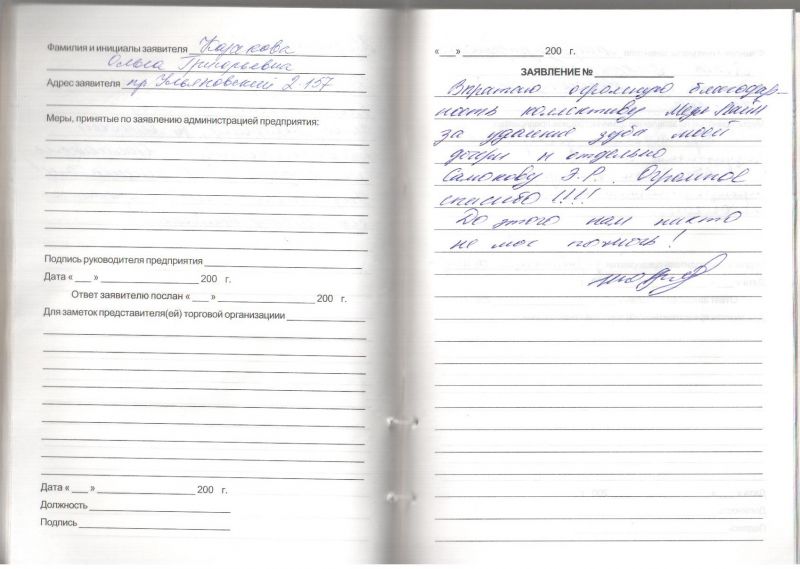 Фамилия и инициалы заявителя
Ольга Григорьевна
Адрес заявителя пр Ульяновский 2-157
Меры, принятые по заявлению администрацией предприятия:
Подпись руководителя предприятия
Дата « ___ » ____________ 200 г.
Ответ заявителю послан « ___ » ____________ 200 г.
Для заметок представителя(ей) торговой организациии
Дата « ___ » ____________ 200 г.
Должность
Подпись
« ___ » ____________ 200 г.
ЗАЯВЛЕНИЕ № ____________
Выражаю огромную благодар-
ность коллективу
за удаление зуба моей
дочери и отдельно
Э.Р. Огромное
спасибо !!!!
До этого нам никто
не мог помочь!